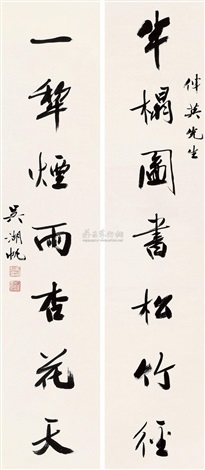 仲英先生
半榻圖書松竹徑
一犁煙雨杏花天
吳湖帆